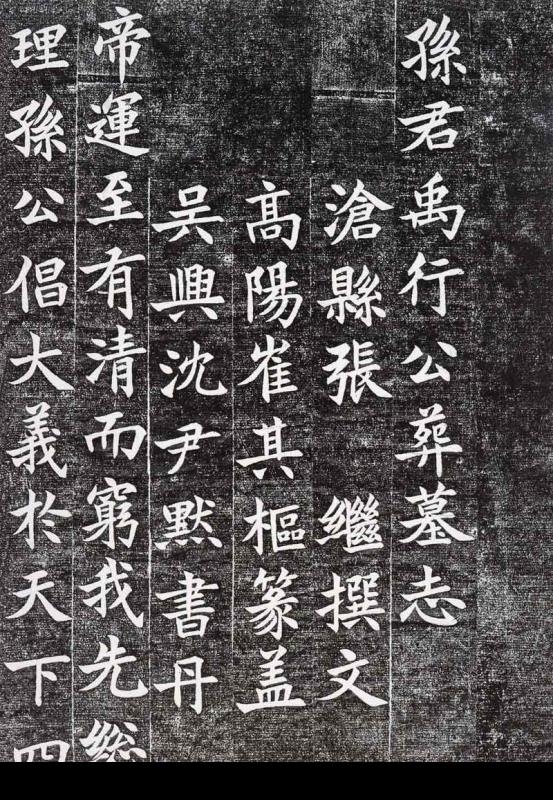 孫君禹行公葬墓志
滄縣張 繼撰文
高陽崔其樞篆盖
吴興沈尹默書丹
帝運至有清而窮我先總
理孫公倡大義於天下四